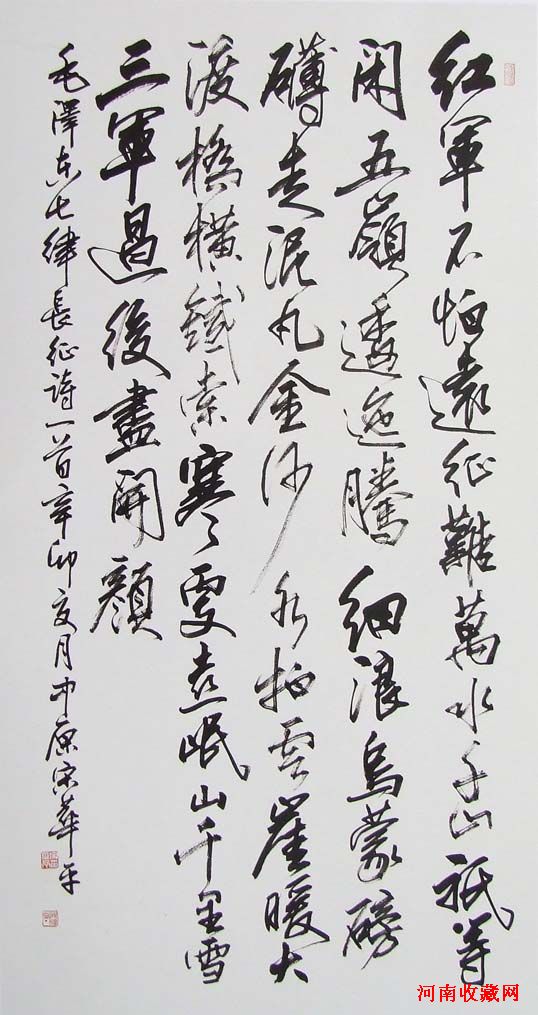 紅軍不怕遠征難萬水千山祇等
閑五嶺逶迤騰細浪烏蒙磅
礴走泥丸金沙水拍雲崖暖大
渡橋橫鐵索寒更喜岷山千里雪
三軍過後盡開顏
毛澤東七律長征詩一首辛卯夏月中原宋華平
河南收藏网